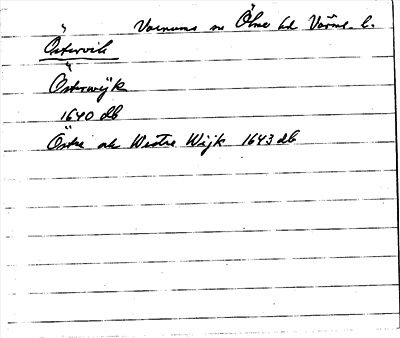 Varnums sn Ölme hd Värml. l.
Östervik
Österwijk
1640 db
Östre ok Westre Wijk 1643 db